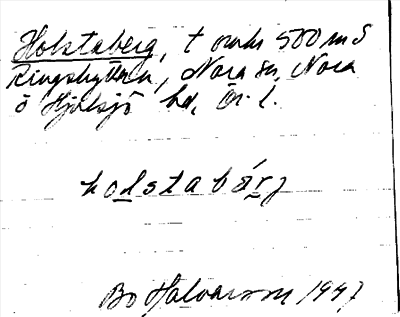 Holstaberg, t omr 500 m S
Ringshyttan, Nora sn, Nora
o Hjulsjö hd, Ör. l.
holstabärj
Bo Halvarsson 1997